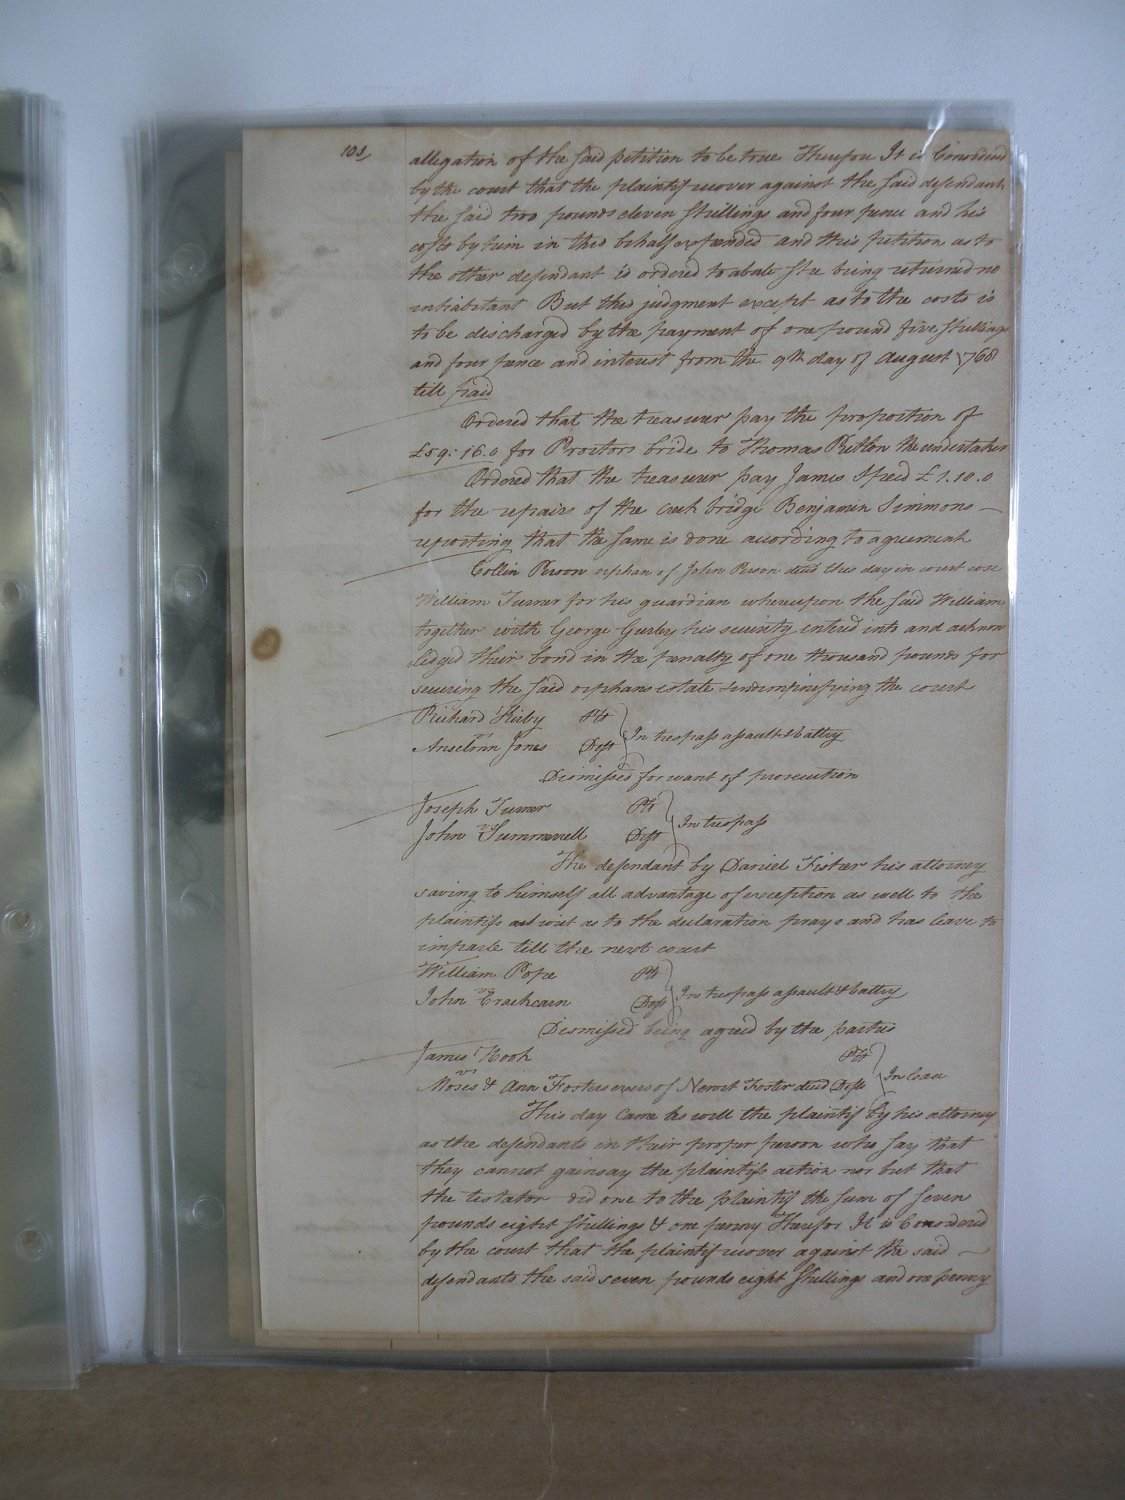 103
allegation of the said petition to be true Therefore It is Considered
by the court that the plaintif recover against the said defendant
the said two pounds eleven Shillings and four pence and his
costs by him in this behalf expended and this petition as to
the other defendant is ordered to abate She being returned no
inhabitant But this judgment except as to the costs is
to be discharged by the payment of one pound five Shillings
and four pence and interest from the 9th day of August 1768
till paid
Ordered that the treasurer pay the proportion of
£59: 16.0 for Proctors bride to Thomas the undertaker
Ordered that the treasurer pay James Speed £1.10.0
for the repairs of the creek bridge Benjamin Simmons
reporting that the same is done according to agreement
Collin Person orphan of John Person decd this day in court cose
William Turner for his guardian whereupon the said William
together with George Gurley his security entered into and acknow
ledged their bond in the penalty of one thousand pounds for
securing the said orphans estate & indempnefying the court
Richard Kirby Plt
vs In trespass assault & battry
Anselmn Jones Deft
Dismissed for want of prosecution
Joseph Turner Plt
vs In trespass
John Summerell Deft
The defendant by Daniel Fisher his attorney
saving to himself all advantage of exception as well to the
plaintifs writ as to the declaration prays and has leave to
imparle till the next court
William Pope Plt
vs In trespass assault & battry
John Deft
Dismissed being agreed by the parties
James Hook Plt
vs In Case
Moses & Ann Fosters exers of Newit Foster decd Defts
This day came as well the plaintif by his attorney
as the defendants in their proper person who say that
they cannot gainsay the plaintifs action nor but that
the testator did owe to the plaintif the sum of seven
pounds eight Shillings & one penny Therefor It is Considered
by the court that the plaintif recover against the said
defendants the said seven pounds eight Shillings and one penny